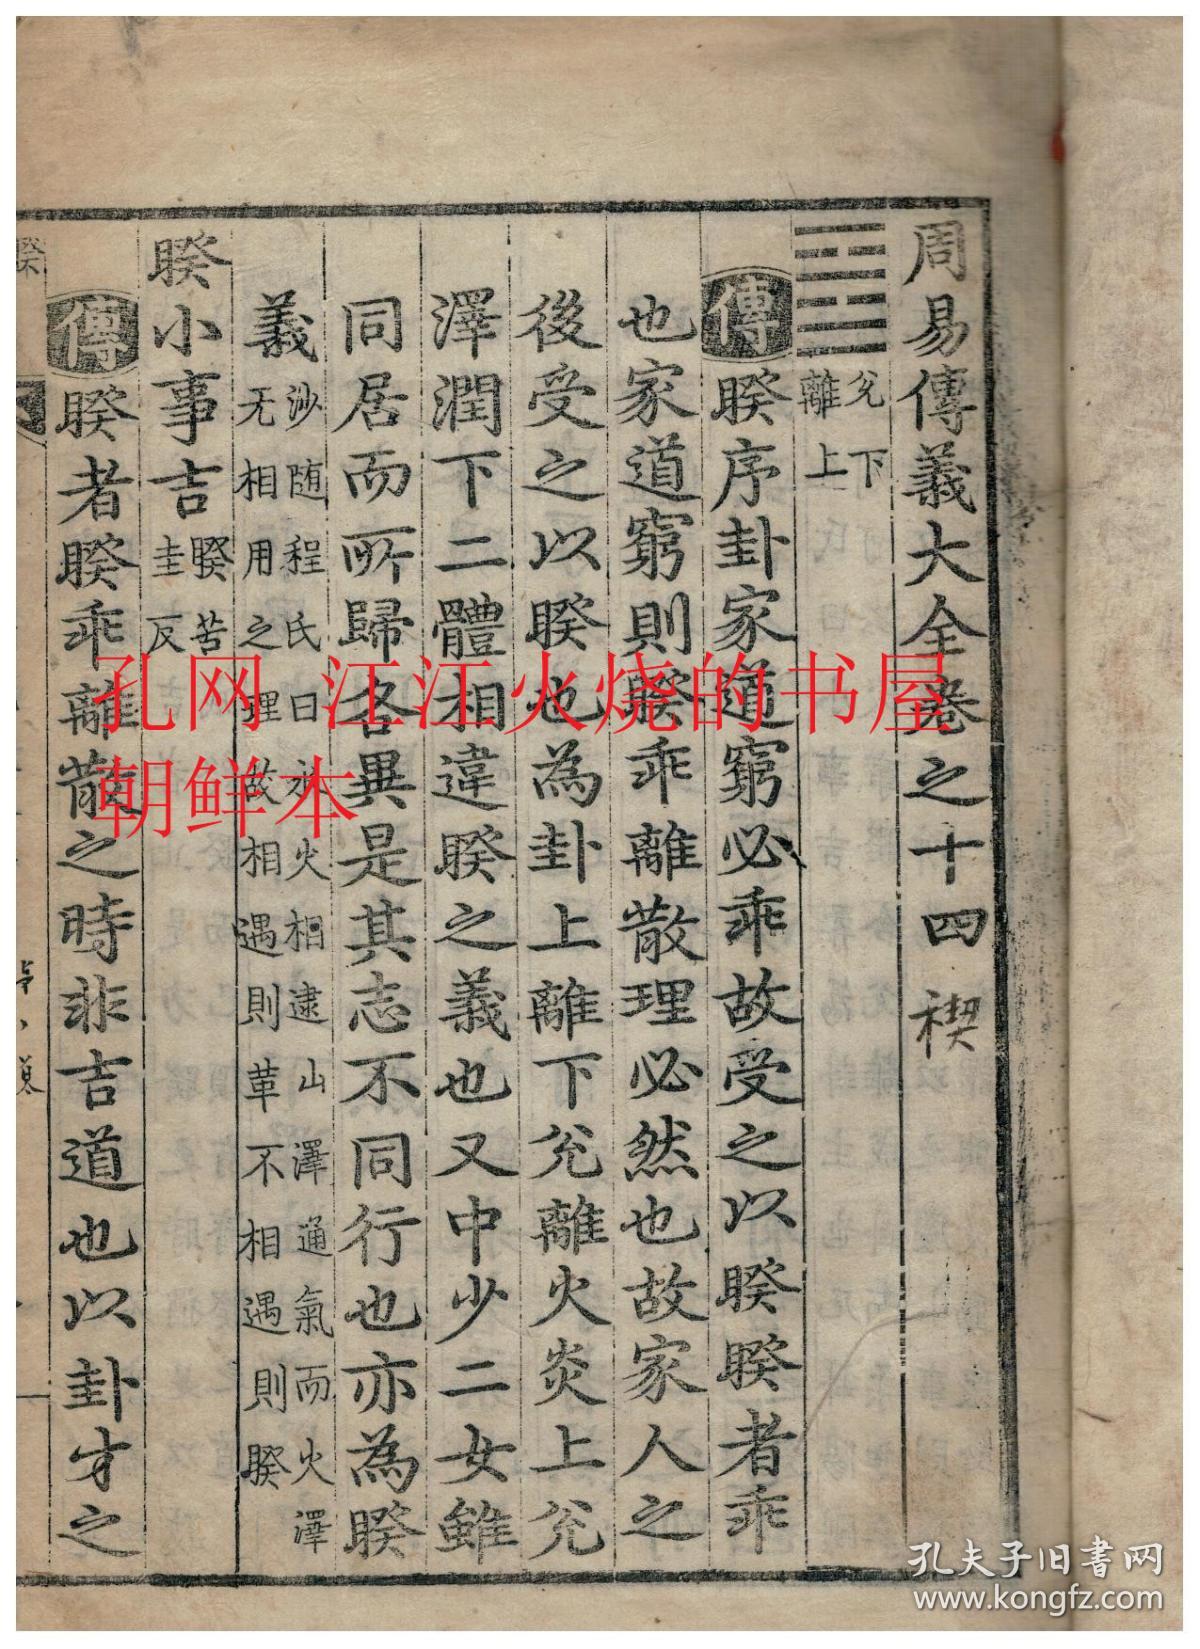 周易傳義大全卷之十四 禊
兊下
離上
傳睽序卦家道窮必乖故受之以睽睽者乖
也家道窮則睽乖離散理必然也故家人之
後受之以睽也為卦上離下兊離火炎上兊
澤潤下二體相違睽之義也又中少二女雖
同居而所歸各異是其志不同行也亦為睽
義沙随程氏曰水火相逮山澤通氣而火澤
无相用之理故相遇則革不相遇則睽
睽小事吉睽苦
圭反
傳睽者睽乖離散之時非吉道也以卦才之
孔网 江江火烧的书屋
朝鲜本
孔夫子旧书网
www.kongfz.com